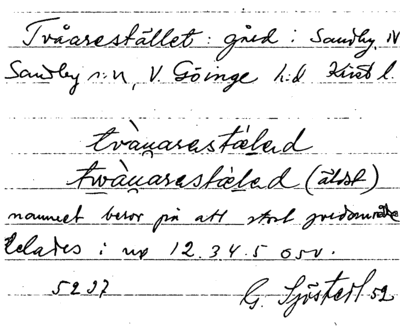 Tvåarestället: gård i Sandby, N
Sandby s:n, V. Göinge h:d Krist l.
tvà̀u̯arestæ̀lɛd
twà̀u̯arestæ̀lɛd (äldst)
namnet beror på att stort godsområde
delades i nr 1 2. 3 4. 5 osv.
5237 G. Sjöstedt 52